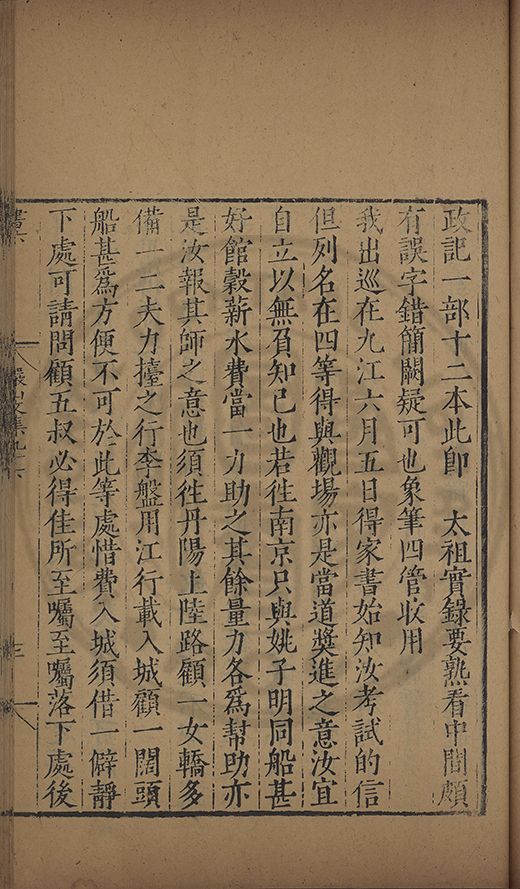 政記一部十二本此卽　太祖實錄要熟看中間頗
有誤字錯簡闕疑可也象筆四管收用
我出巡在九江六月五日得家書始知汝考試的信
但列名在四等得與觀場亦是當道奬進之意汝宜
自立以無負知己也若徃南京只與姚子明同船甚
好館穀薪水費當一力助之其餘量力各爲幇助亦
是汝報其師之意也須徃丹陽上陸路顧一女轎多
備一二夫力擡之行李盤用江行載入城顧一闊頭
船甚爲方便不可於此等處惜費入城須借一僻靜
下處可請問顧五叔必得佳所至囑至囑落下處後
三